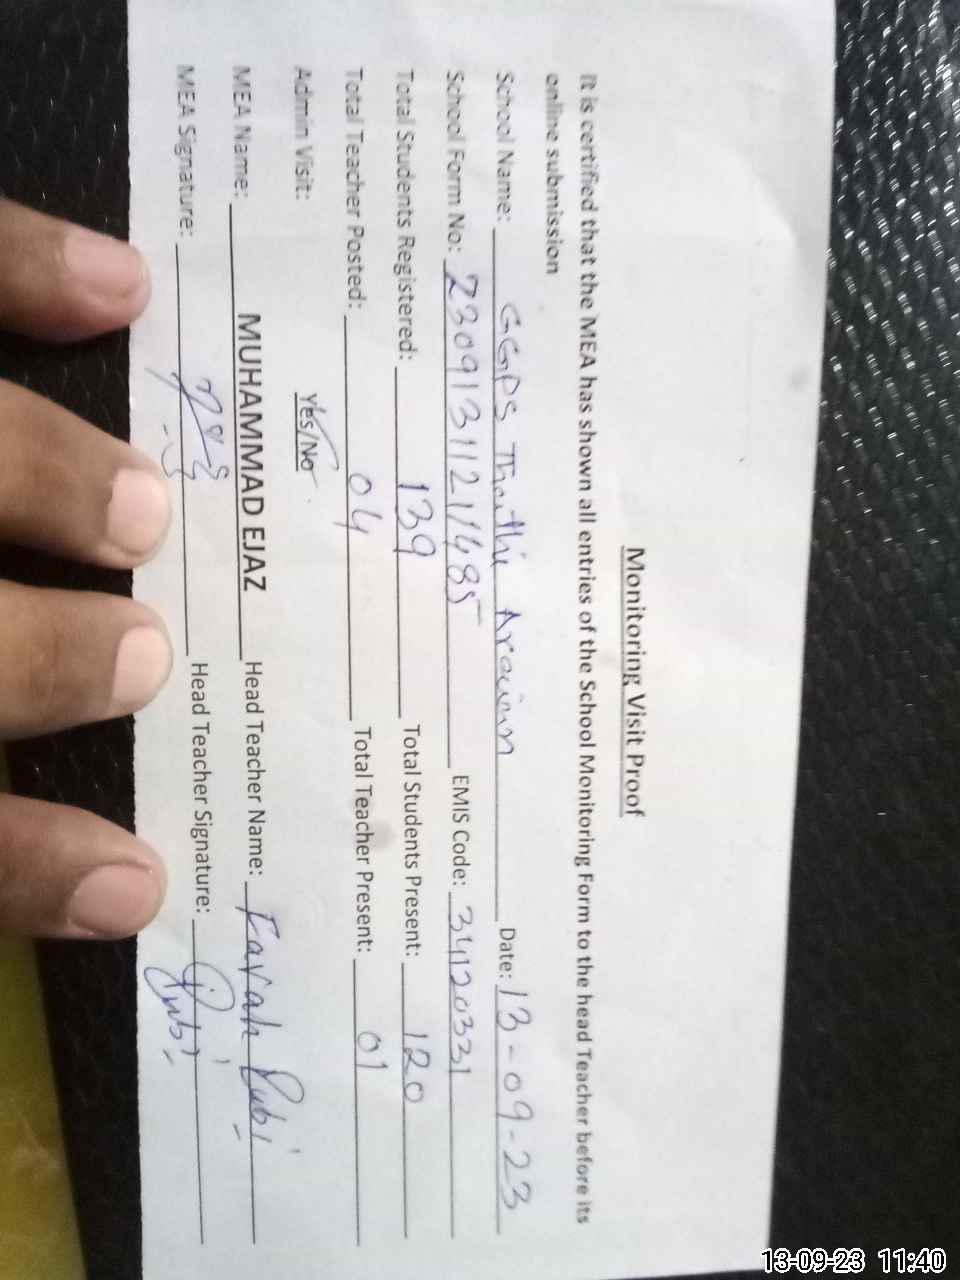 Monitoring Visit Proof
It is certified that the MEA has shown all entries of the School Monitoring Form to the head Teacher before its
online submission
School Name: GGPS Thathi Araian Date: 13-09-23
School Form No: 23091311211485 EMIS Code: 34120331
Total Students Registered: 139 Total Students Present: 120
Total Teacher Posted: 04 Total Teacher Present: 01
Admin Visit: Yes/No
MEA Name: MUHAMMAD EJAZ Head Teacher Name: Farah Rubi
MEA Signature: Head Teacher Signature: Rubi
13-09-23 11:40